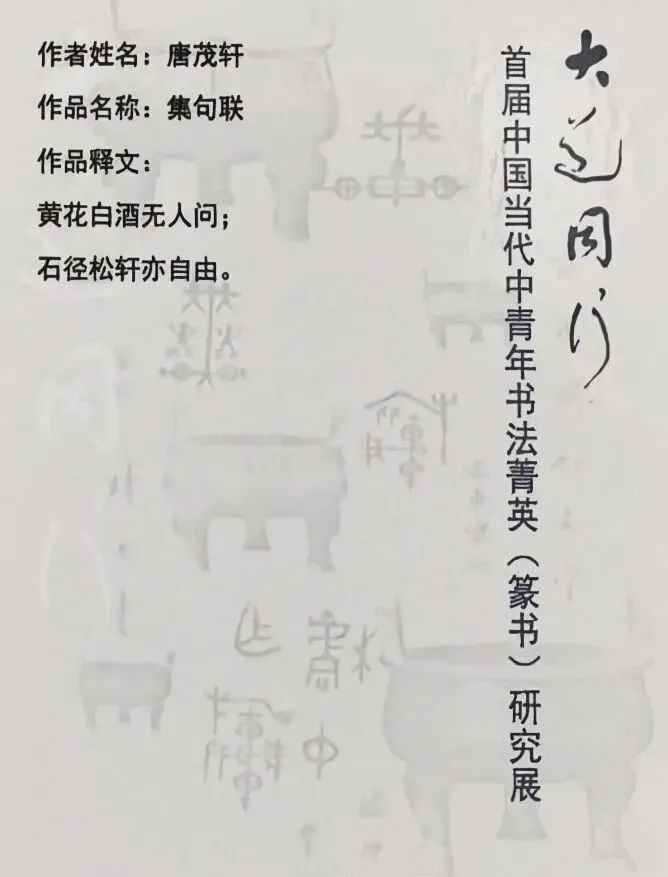 大道同行
首届中国当代中青年书法菁英（篆书）研究展
作者姓名：唐茂轩
作品名称：集句联
作品释文：
黄花白酒无人问；
石径松轩亦自由。